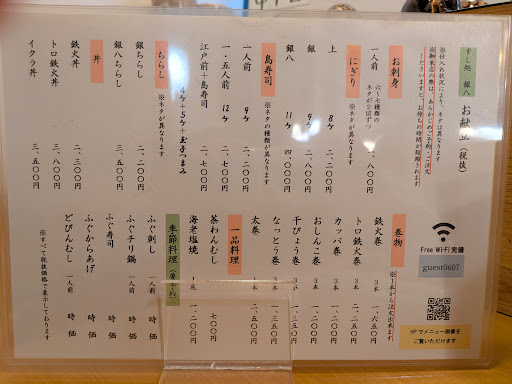 すし処 銀八 お献立(税抜)
※仕入れ状況により、ネタは異なります
※御来店の際は、あらかじめご予約・ご注文
くださいますと、お待ちの時間が短縮されます
お刺身
六〜七種類の
ネタが2切ずつ
一人前 二、八〇〇円
にぎり ※ネタが異なります
上 8ヶ 二、二〇〇円
銀 9ヶ 二、八〇〇円
銀八 11ヶ 四、〇〇〇円
島寿司 ※ネタの種類が異なります
一人前 9ヶ 二、一〇〇円
一・五人前 12ヶ 二、七〇〇円
江戸前+島寿司 二、七〇〇円
4ヶ+5ヶ+玉子つまみ
ちらし ※ネタが異なります
銀ちらし 二、二〇〇円
銀八ちらし 三、五〇〇円
丼
鉄火丼 二、三〇〇円
トロ鉄火丼 三、八〇〇円
イクラ丼 三、五〇〇円
Free Wi-Fi 完備
guest0607
HPでメニュー画像を
ご覧いただけます
巻物 ※1本から注文出来ます
鉄火巻 3本 一、六五〇円
トロ鉄火巻 3本
カッパ巻 3本
おしんこ巻 3本
干ぴょう巻 3本 一、二〇〇円
なっとう巻 3本 一、三五〇円
太巻 1本 二、五〇〇円
一品料理
茶わんむし 七〇〇円
海老塩焼 1尾 一、二〇〇円
季節料理(要予約)
ふぐ刺し 一人前 時価
ふぐチリ鍋 一人前 時価
ふぐ寿司 時価
ふぐからあげ 時価
どびんむし 一人前 時価
※すべて税抜価格で表示しております